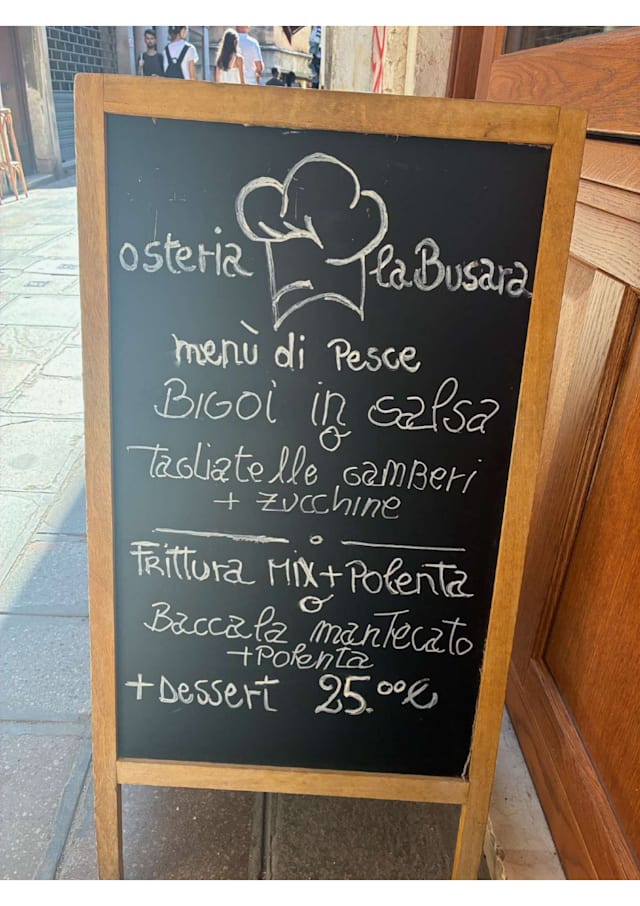 osteria la Busara
menù di Pesce
BIGOI in salsa
o
Tagliatelle GAMBERI
+ zucchine
o
Frittura Mix + Polenta
o
Baccalà mantecato
+ Polenta
+ Dessert 25.00€